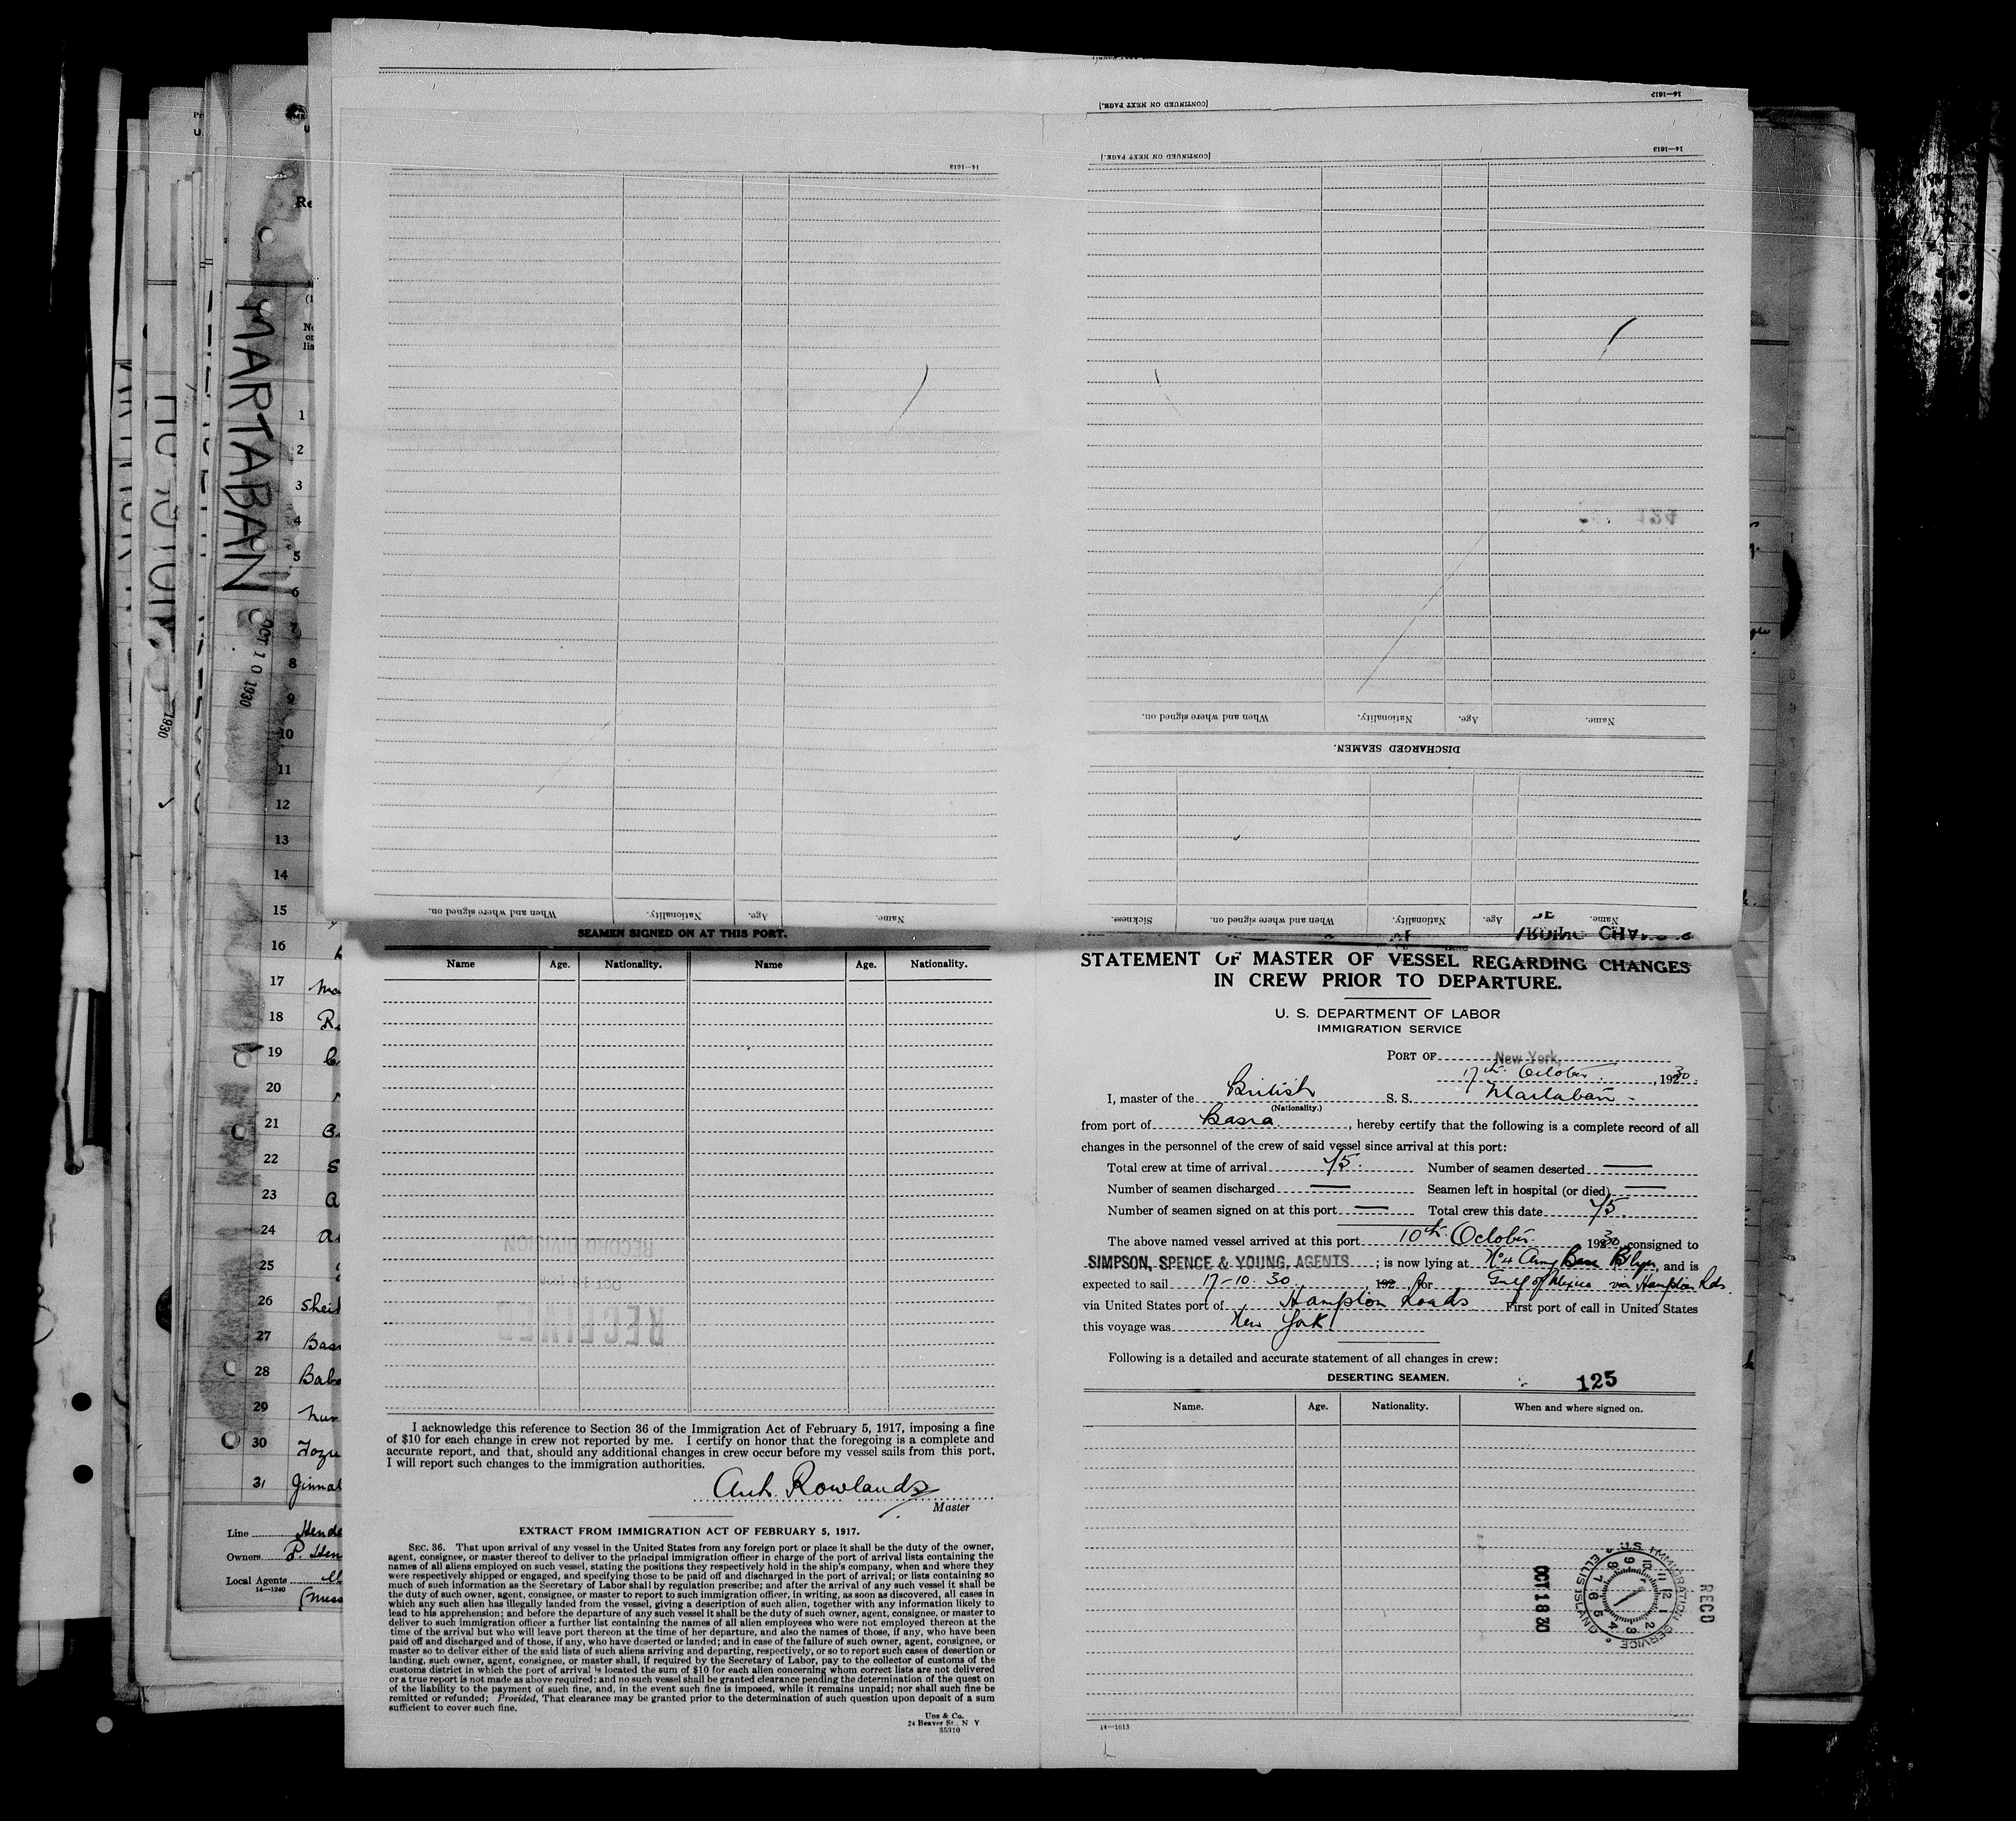 MARTABAN
OCT 10 1930
1930
Re
1
2
3
4
5
6
7
8
9
10
11
12
13
14
15
16
17
18
19
20
21
22
23
24
25
26
27
28
29
30
31
Line
Owners
Local Agents
14—1240
14—1613
[CONTINUED ON NEXT PAGE.]
14—1613
[CONTINUED ON NEXT PAGE.]
14—1613
124
When and where signed on. Nationality. Age. Name.
DISCHARGED SEAMEN.
When and where signed on. Nationality. Age. Name.
Sickness. When and where signed on. Nationality. Age. Name.
SEAMEN SIGNED ON AT THIS PORT.
Name Age. Nationality. Name Age. Nationality.
RECORD DIVISION
RECEIVED
I acknowledge this reference to Section 36 of the Immigration Act of February 5, 1917, imposing a fine
of $10 for each change in crew not reported by me. I certify on honor that the foregoing is a complete and
accurate report, and that, should any additional changes in crew occur before my vessel sails from this port,
I will report such changes to the immigration authorities.
Arth. Rowlands
Master
EXTRACT FROM IMMIGRATION ACT OF FEBRUARY 5, 1917.
SEC. 36. That upon arrival of any vessel in the United States from any foreign port or place it shall be the duty of the owner,
agent, consignee, or master thereof to deliver to the principal immigration officer in charge of the port of arrival lists containing the
names of all aliens employed on such vessel, stating the positions they respectively hold in the ship's company, when and where they
were respectively shipped or engaged, and specifying those to be paid off and discharged in the port of arrival; or lists containing so
much of such information as the Secretary of Labor shall by regulation prescribe; and after the arrival of any such vessel it shall be
the duty of such owner, agent, consignee, or master to report to such immigration officer, in writing, as soon as discovered, all cases in
which any such alien has illegally landed from the vessel, giving a description of such alien, together with any information likely to
lead to his apprehension; and before the departure of any such vessel it shall be the duty of such owner, agent, consignee, or master to
deliver to such immigration officer a further list containing the names of all alien employees who were not employed thereon at the
time of the arrival but who will leave port thereon at the time of her departure, and also the names of those, if any, who have been
paid off and discharged and of those, if any, who have deserted or landed; and in case of the failure of such owner, agent, consignee, or
master so to deliver either of the said lists of such aliens arriving and departing, respectively, or so to report such cases of desertion or
landing, such owner, agent, consignee, or master shall, if required by the Secretary of Labor, pay to the collector of customs of the
customs district in which the port of arrival is located the sum of $10 for each alien concerning whom correct lists are not delivered
or a true report is not made as above required; and no such vessel shall be granted clearance pending the determination of the quest on
of the liability to the payment of such fine, and, in the event such fine is imposed, while it remains unpaid; nor shall such fine be
remitted or refunded; Provided, That clearance may be granted prior to the determination of such question upon deposit of a sum
sufficient to cover such fine.
Unz & Co.
24 Beaver St., N Y
35310
STATEMENT OF MASTER OF VESSEL REGARDING CHANGES
IN CREW PRIOR TO DEPARTURE.
U. S. DEPARTMENT OF LABOR
IMMIGRATION SERVICE
PORT OF New York,
17th October , 1930.
I, master of the British S. S. Martaban
(Nationality.)
from port of Basra , hereby certify that the following is a complete record of all
changes in the personnel of the crew of said vessel since arrival at this port:
Total crew at time of arrival 75. Number of seamen deserted —
Number of seamen discharged — Seamen left in hospital (or died) —
Number of seamen signed on at this port — Total crew this date 75.
The above named vessel arrived at this port 10th October 1930, consigned to
SIMPSON, SPENCE & YOUNG, AGENTS ; is now lying at No 4 Army Base Bklyn, and is
expected to sail 17-10-30 , 192 , for Gulf of Mexico via Hampton Rds.
via United States port of Hampton Roads First port of call in United States
this voyage was New York
Following is a detailed and accurate statement of all changes in crew:
DESERTING SEAMEN. 125
Name. Age. Nationality. When and where signed on.
OCT 18 30
U.S. IMMIGRATION SERVICE ELLIS ISLAND
RECD
14—1613